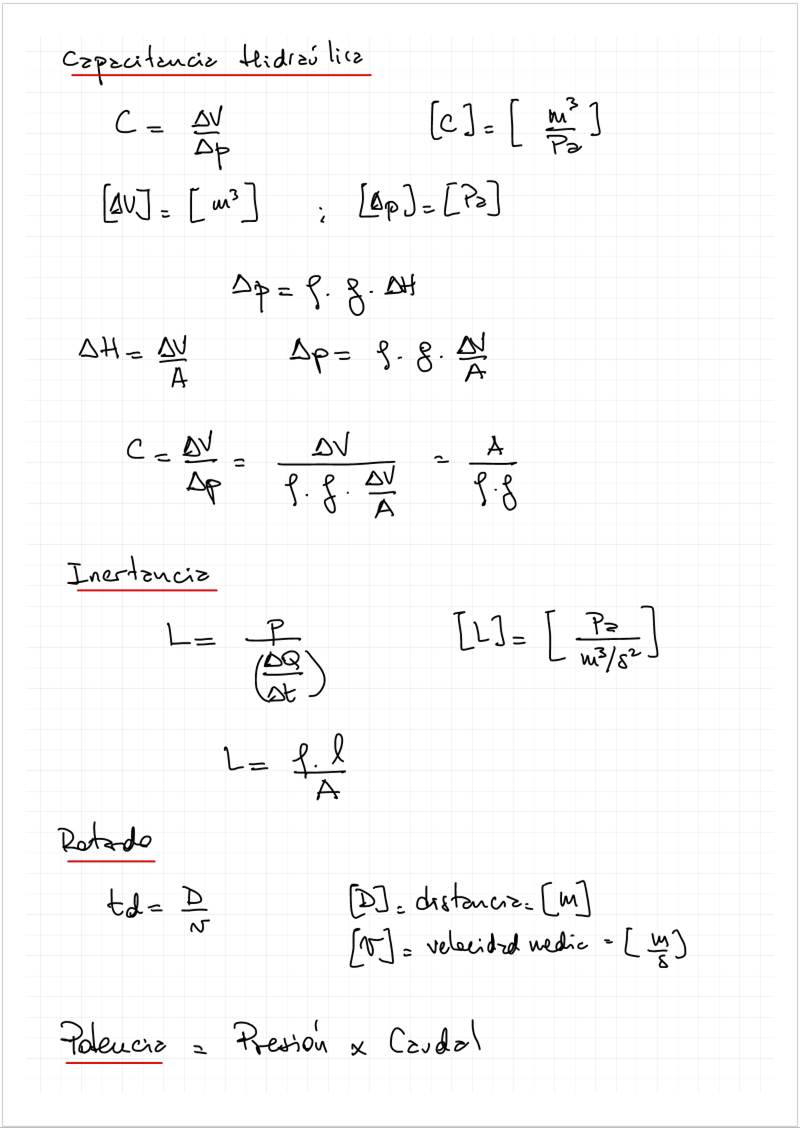 Capacitancia Hidraúlica
C = ΔV/Δp    [C] = [m³/Pa]
[ΔV] = [m³] ; [Δp] = [Pa]
Δp = ρ. g. ΔH
ΔH = ΔV/A    Δp = ρ. g. ΔV/A
C = ΔV/Δp = ΔV/(ρ. g. ΔV/A) = A/(ρ.g)
Inertancia
L = P/(ΔQ/Δt)    [L] = [Pa/(m³/s²)]
L = ρ.l/A
Retardo
td = D/v    [D] = distancia = [m]
[v] = velocidad media = [m/s]
Potencia = Presión x Caudal